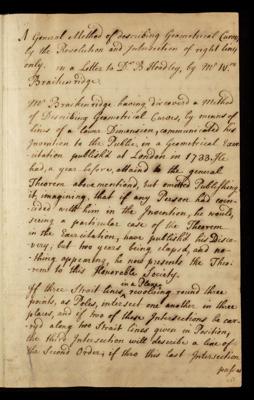 A General Method of describing Geometrical Curves,
by the Revolution and Intersection of right lines
only. in a Letter to Dr. B. Hoadley, by Mr. Wm.
Braikenridge.
Mr. Braikenridge having discovered a Method
of Describing Geometrical Curves, by means of
lines of a lower Dimension, communicated his
Invention to the Public, in a Geometrical Exer-
citation publish'd at London in 1733. He
had, a year before, attain'd to the general
Theorem above mentioned, but omitted Publishing
it, imagining, that if any Person had coin-
cided with him in the Invention, he would,
seeing a particular case of the Theorem
in the Exercitation, have publish'd his Disco-
very; but two years being elapsed, and no-
thing appearing, he now presents the Theo-
rem to this Honorable Society.
in a Plane
If three Strait lines, revolving round three
points, as Poles, intersect one another in three
places, and if two of these Intersections be car-
ryed along two Strait lines given in Position,
the third Intersection will describe a line of
the Second Order; if thro this last Intersection